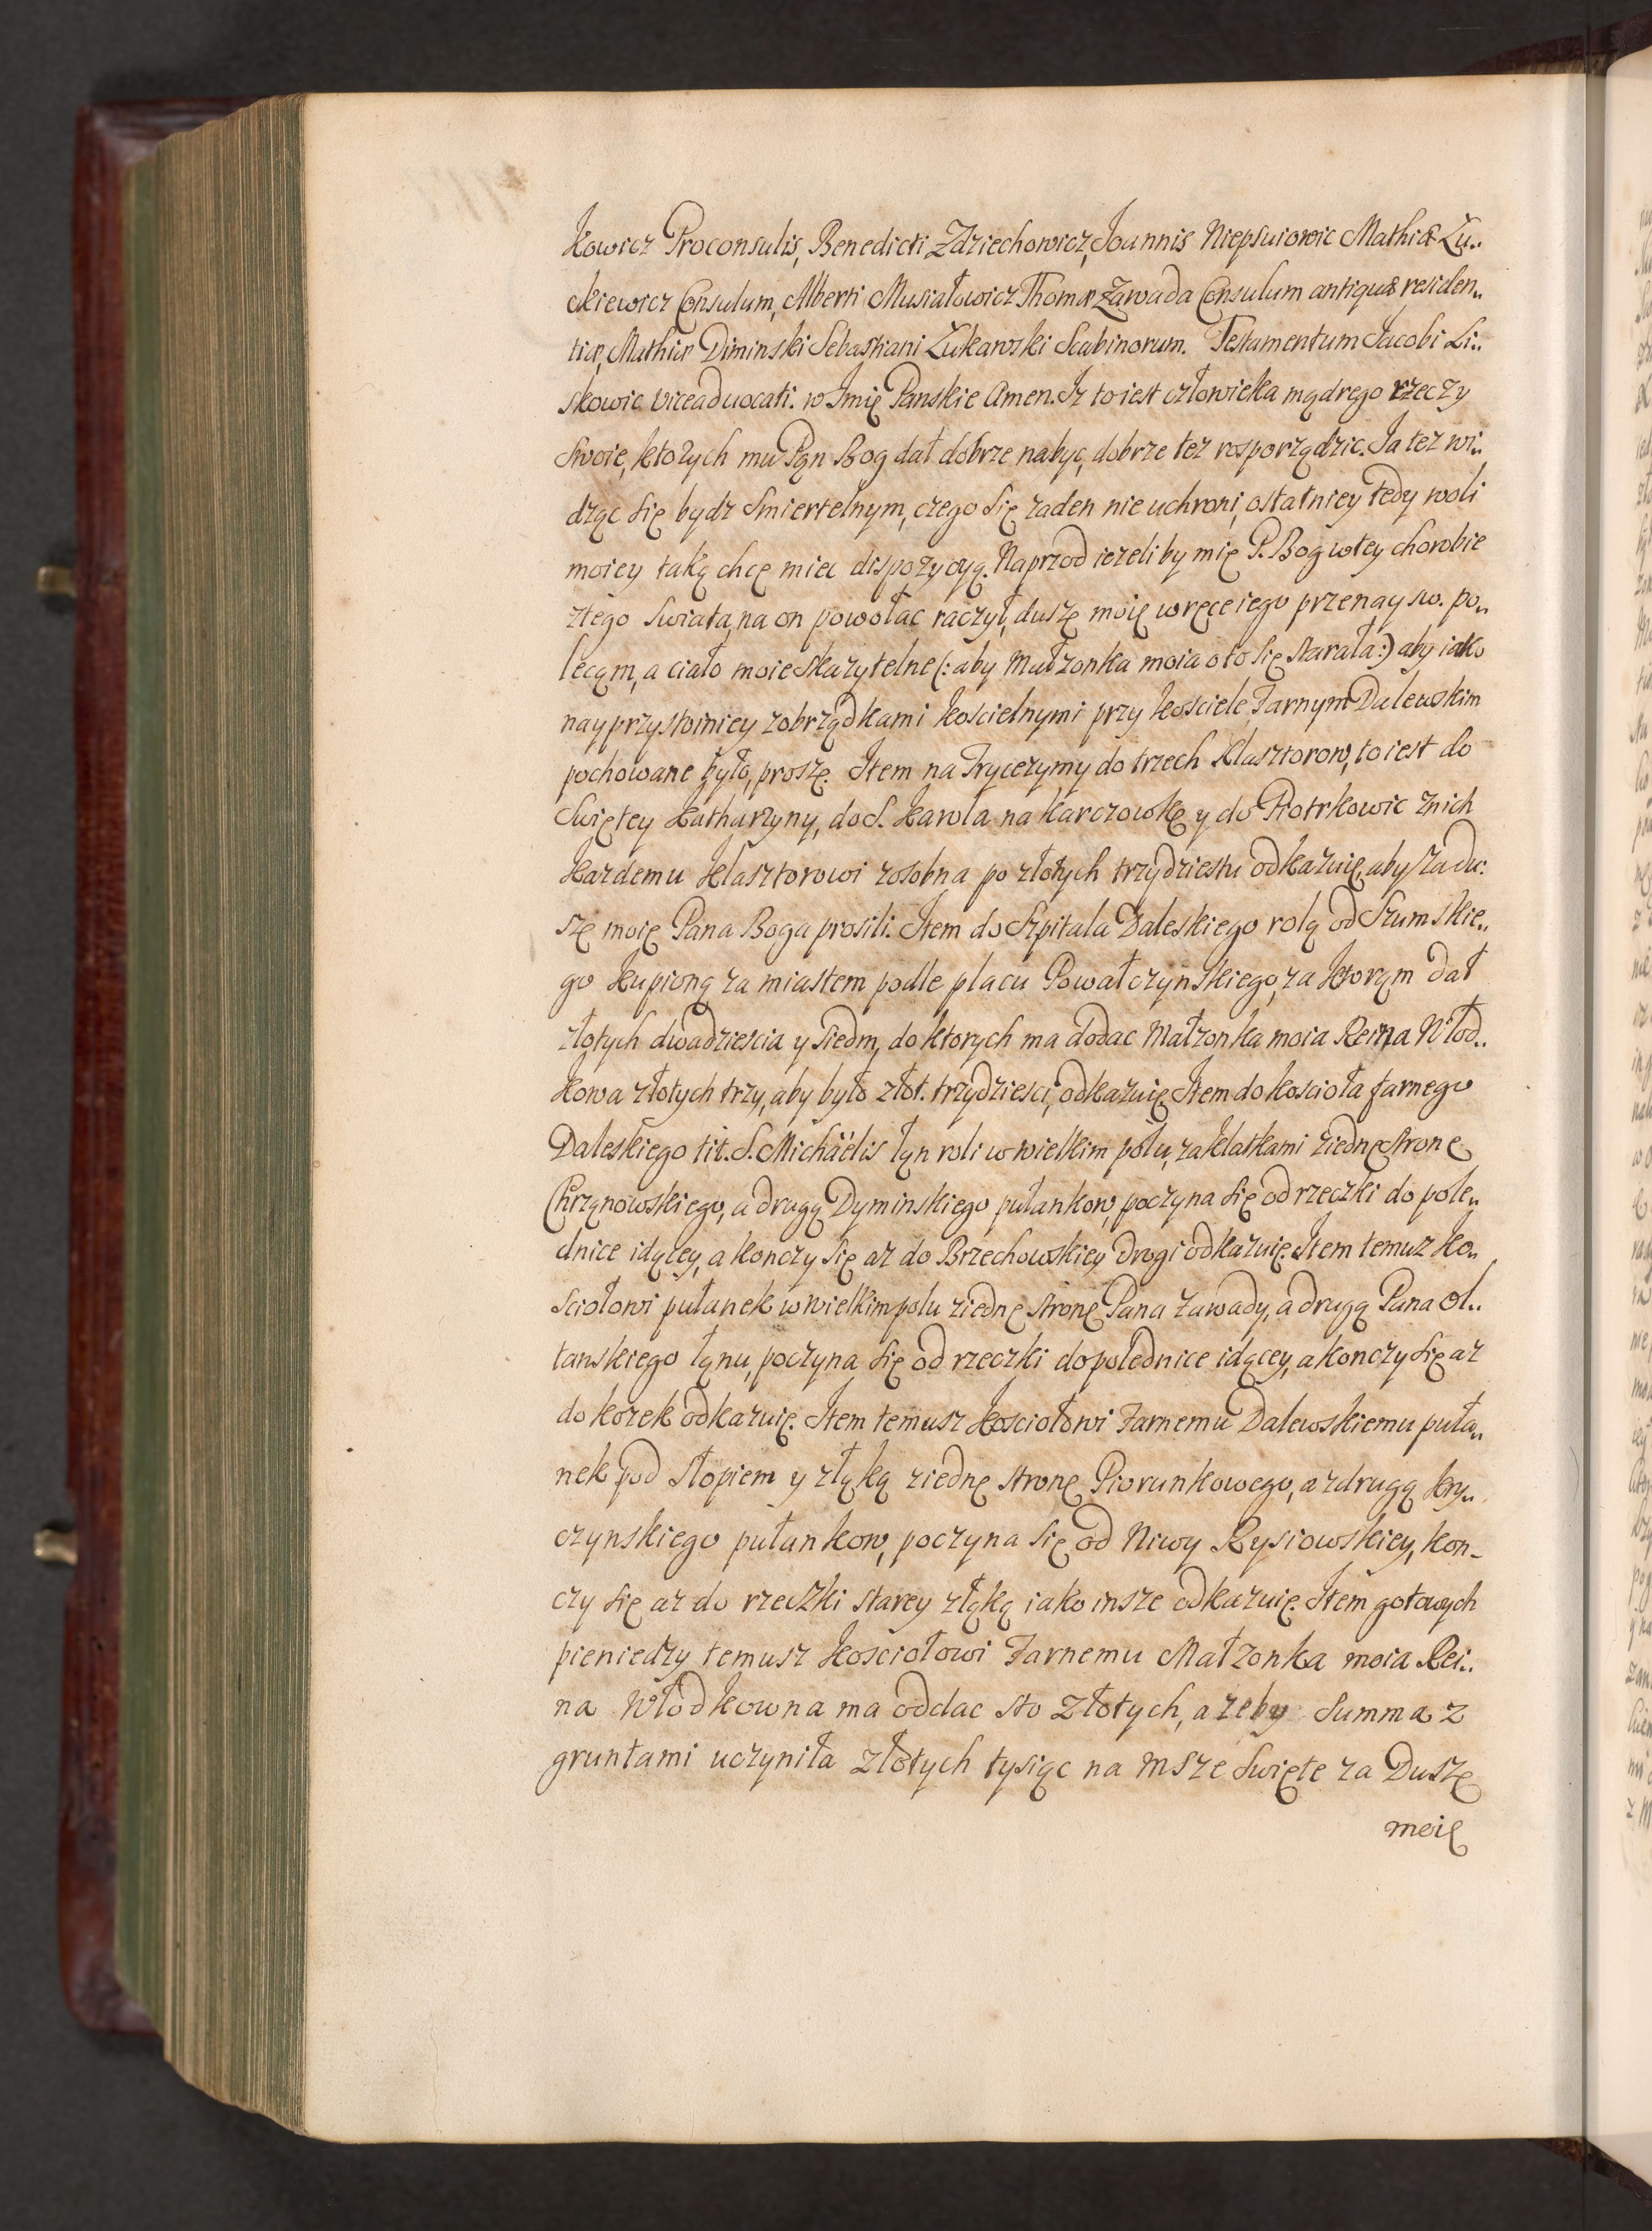 kowicz Proconsulis, Benedicti Zdziechowicz, Joannis Niepsuiowic Mathiæ Łu„
ckiewicz Consulum, Alberti Musiałowicz Thomæ Zawada Consulum antiquæ residen„
tiæ, Mathiæ Diminski Sebastiani Łukawski Scabinorum. Testamentum Jacobi Li„
skowic viceaduocati. w Imię Panskie Amen. Iz to iest człowieka mądrego rzeczy
swoie, ktorych mu Pan Bog dał dobrze nabyc, dobrze tez rosporządzic. Ja tez wi„
dząc się bydz smiertelnym, czego się zaden nie uchroni, ostatniey tedy woli
moiey taką chcę miec dispozycyą. Naprzod iezeli by mię P. Bog w tey chorobie
z tego swiata, na on powołac raczył, duszę moię w ręce iego przenaysw. po„
lecąm, a ciało moie skazytelne (: aby Małzonka moia o to się starała :) aby iako
nayprzystoiniey z obrządkami koscielnymi przy kosciele Farnym Dalewskim
pochowane było, proszę. Item na Trycezymy do trzech Klasztorow, to iest do
Swiętey Katharzyny, do S. Karola na Karczowkę y do Piotrkowic z nich
kazdemu klasztorowi zosobna po złotych trzydziestu odkazuię, aby za du„
szę moię Pana Boga prosili. Item do Szpitala Daleskiego rolą od Szumskie„
go kupioną za miastem podle placu Powałczynskiego, za ktorąm dał
złotych dwadziescia y siedm, do ktorych ma dodac Małzonka moia Reina Włod„
kowa złotych trzy, aby było złot. trzydziesci, odkazuię. Item do koscioła farnego
Daleskiego tit. S. Michaëlis łąn roli w wielkim polu, za klatkami z iednę stronę
Chrząnowskiego, a drugą Dyminskiego pułankow, poczyna się od rzeczki do pole„
dnice idącey, a konczy się az do Brzechowskiey drogi odkazuię. Item temuz ko„
sciołowi pułanek w wielkim polu z iednę stronę Pana Zawady, a drugą Pana Ol„
tanskiego łąnu, poczyna się od rzeczki do polednice idącey, a konczy się az
do kozek odkazuię. Item temusz kosciołowi Farnemu Dalewskiemu puła„
nek pod Stopiem y złąką z iednę stronę Piorunkowego, a z drugą kry„
czynskiego pułankow, poczyna się od Niwy Rysiowskiey, kon-
czy się az do rzeczki starey złąką iako insze odkazuię. Item gotowych
pieniedzy temusz kosciołowi Farnemu Małzonka moia Rei„
na Włodkowna ma oddac sto złotych, azeby summa z
gruntami uczyniła złotych tysiąc na msze swięte za Duszę
moię